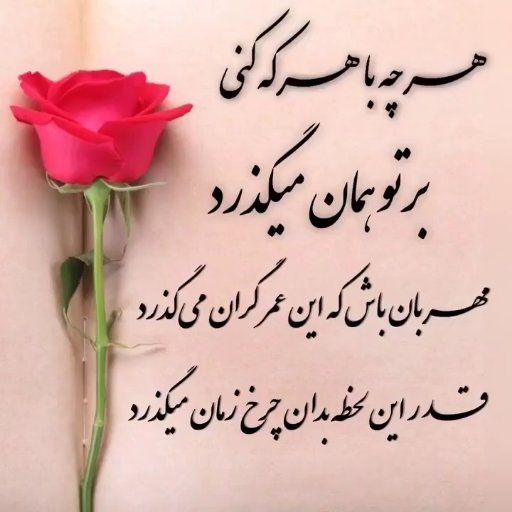 هر چه با هر که کنی
بر تو همان میگذرد
مهربان باش که این عمر گران می گذرد
قدر این لحظه بدان چرخ زمان میگذرد